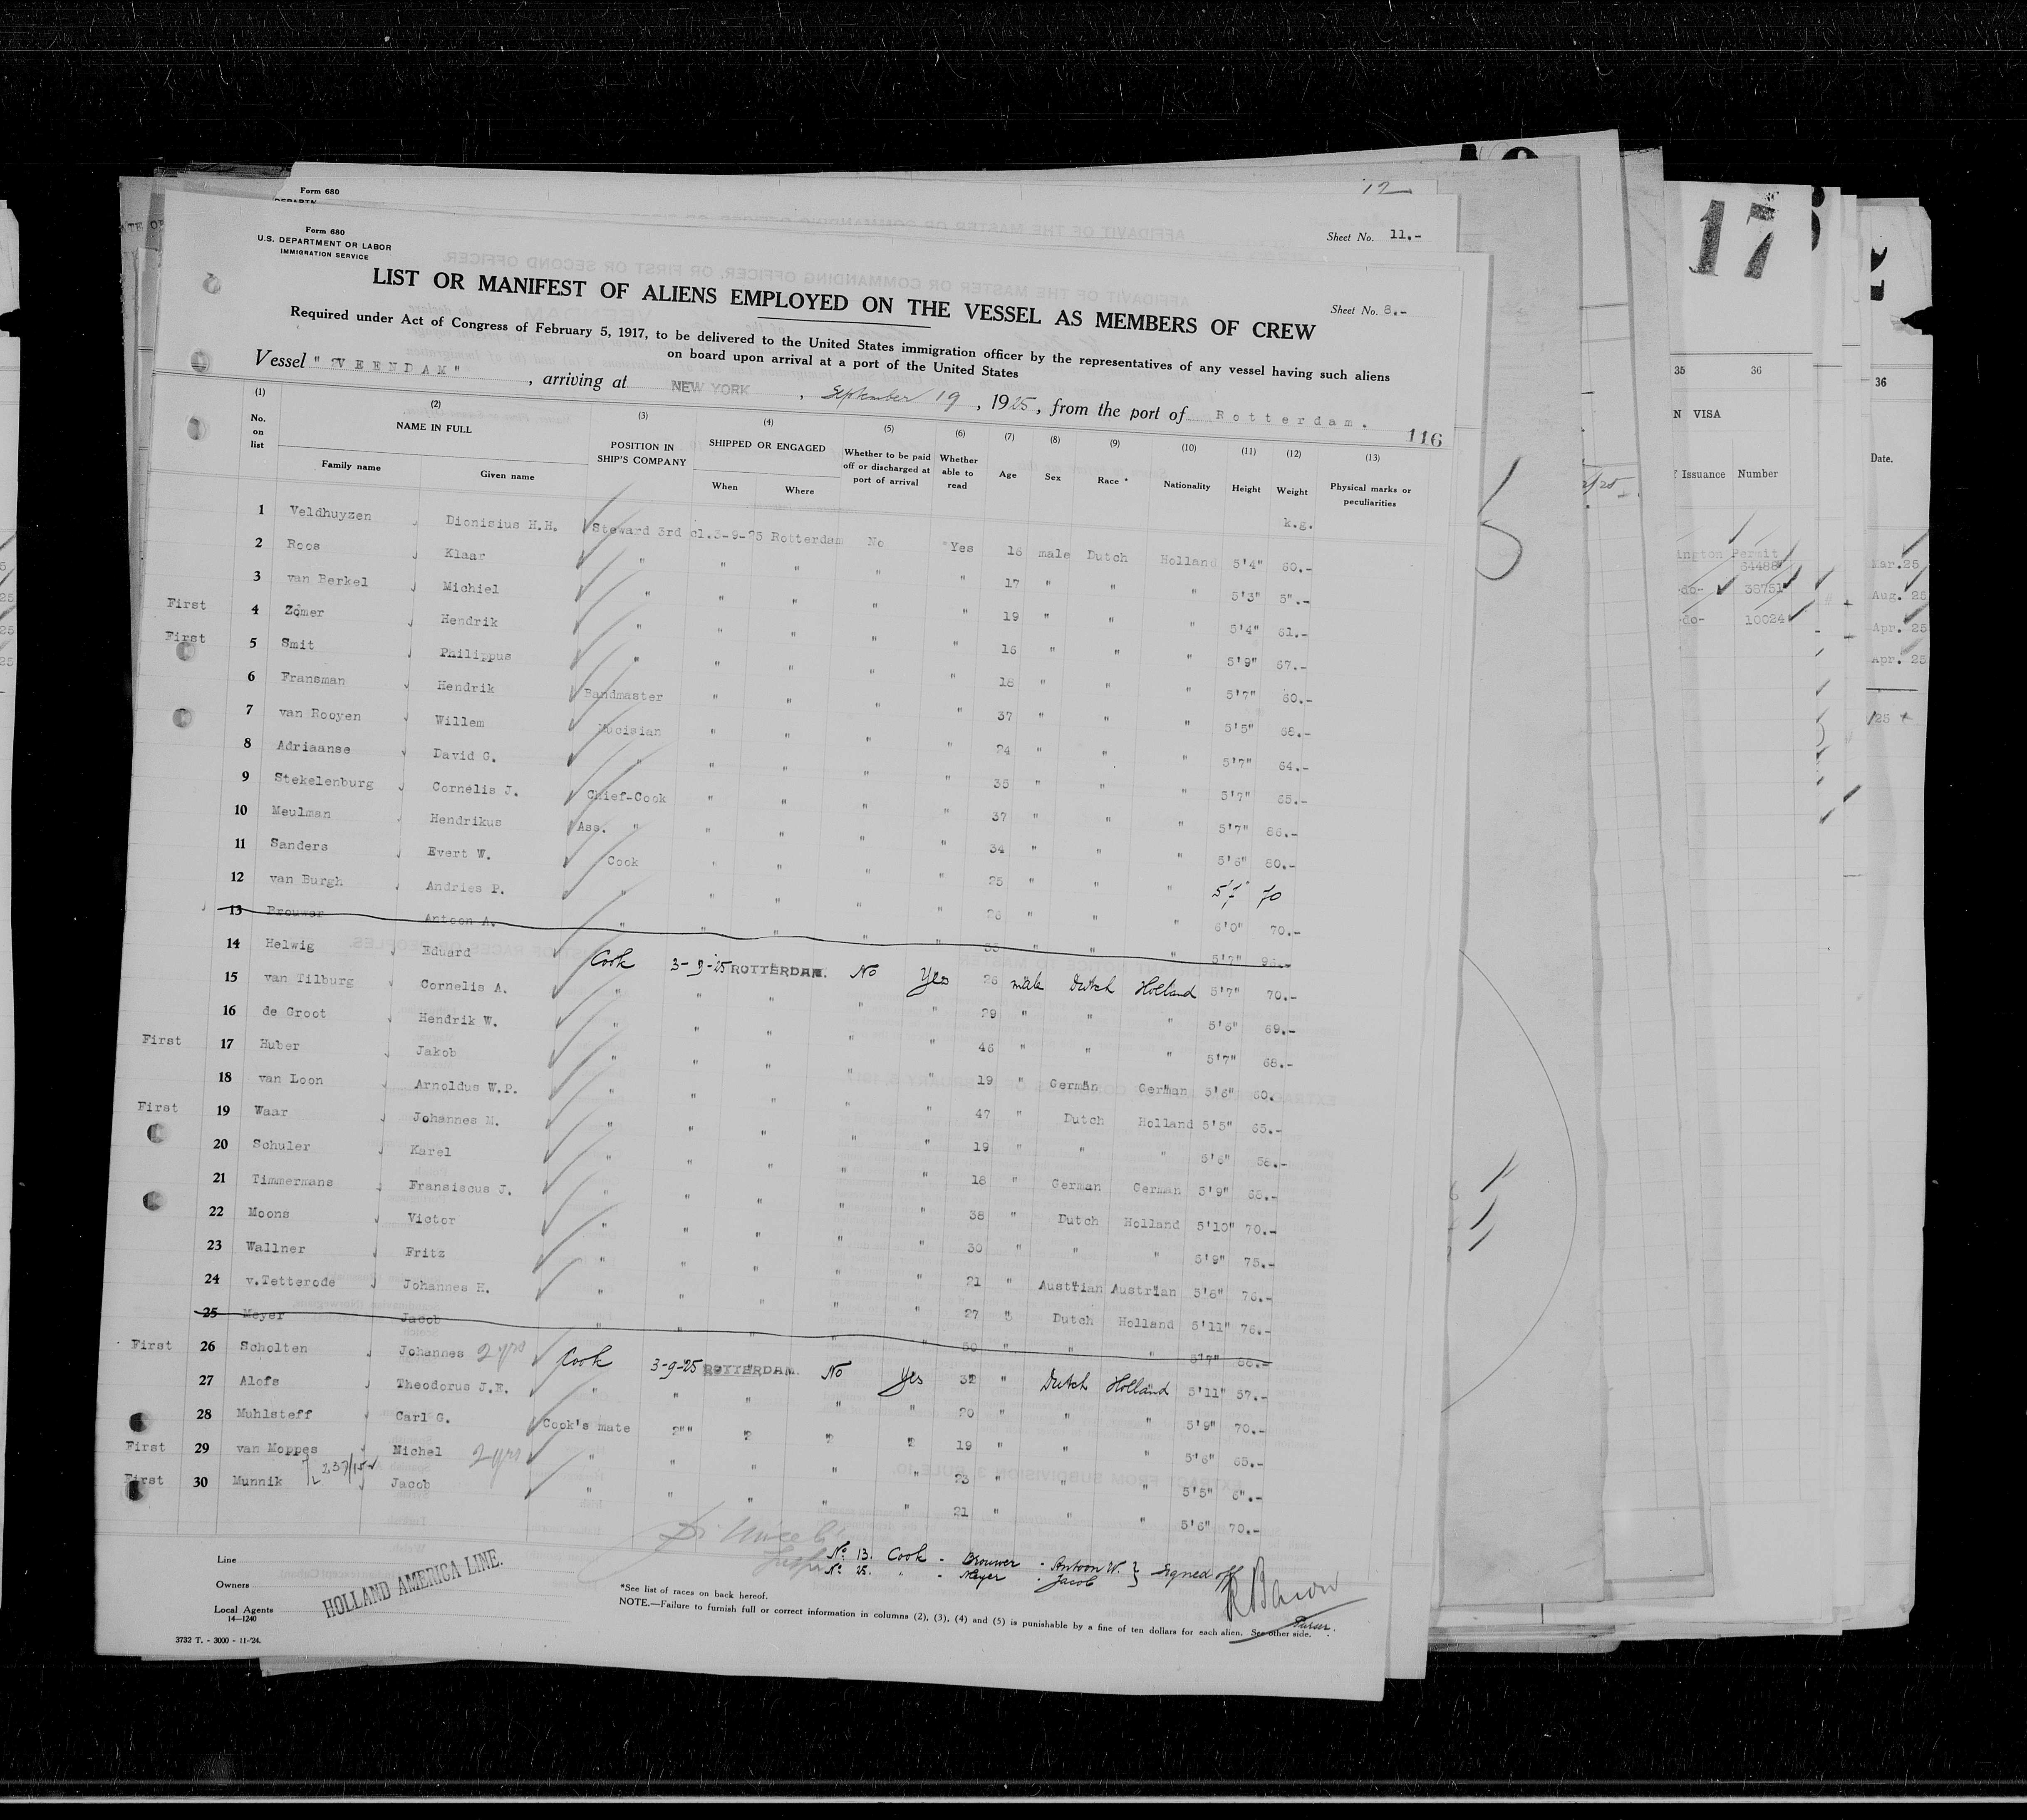 Form 680
12
Sheet No. 11.-
Form 680
U.S. DEPARTMENT OR LABOR
IMMIGRATION SERVICE
Sheet No. 8.-
LIST OR MANIFEST OF ALIENS EMPLOYED ON THE VESSEL AS MEMBERS OF CREW
Required under Act of Congress of February 5, 1917, to be delivered to the United States immigration officer by the representatives of any vessel having such aliens
on board upon arrival at a port of the United States
Vessel "VEENDAM", arriving at NEW YORK, September 19, 1925, from the port of Rotterdam.
116
(1) (2) (3) (4) (5) (6) (7) (8) (9) (10) (11) (12) (13)
No. on list NAME IN FULL POSITION IN SHIP'S COMPANY SHIPPED OR ENGAGED Whether to be paid off or discharged at port of arrival Whether able to read Age Sex Race * Nationality Height Weight Physical marks or peculiarities
Family name Given name When Where
k.g.
1 Veldhuyzen Dionisius H.H. Steward 3rd cl. 3-9-25 Rotterdam No Yes 16 male Dutch Holland 5'4" 60.-
2 Roos Klaar " " " " " 17 " " " 5'3" 5".-
3 van Berkel Michiel " " " " " 19 " " " 5'4" 61.-
First 4 Zomer Hendrik " " " " " 16 " " " 5'9" 67.-
First 5 Smit Philippus " " " " " 18 " " " 5'7" 60.-
6 Fransman Hendrik Bandmaster " " " " 37 " " " 5'5" 68.-
7 van Rooyen Willem Mucisian " " " " 24 " " " 5'7" 64.-
8 Adriaanse David G. " " " " " 35 " " " 5'7" 65.-
9 Stekelenburg Cornelis J. Chief-Cook " " " " 37 " " " 5'7" 86.-
10 Meulman Hendrikus Ass. " " " " " 34 " " " 5'6" 80.-
11 Sanders Evert W. Cook " " " " 25 " " " 70
12 van Burgh Andries P. " " " " " 26 " " " 6'0" 70.-
13 Brouwer Antoon A. " " " " " " " " 5'7"
14 Helwig Eduard Cook 3-9-25 ROTTERDAM. No Yes 26 male Dutch Holland 5'7" 70.-
15 van Tilburg Cornelis A. " " " " " 29 " " " 5'6" 69.-
16 de Groot Hendrik W. " " " " " 46 " " " 5'7" 68.-
First 17 Huber Jakob " " " " " 19 " German German 5'6" 60.
18 van Loon Arnoldus W.P. " " " " " 47 " Dutch Holland 5'5" 65.-
First 19 Waar Johannes M. " " " " " 19 " " " 5'6" 58.-
20 Schuler Karel " " " " " 18 " German German 5'9" 68.-
21 Timmermans Fransiscus J. " " " " " 38 " Dutch Holland 5'10" 70.-
22 Moons Victor " " " " " 30 " " " 5'9" 75.-
23 Wallner Fritz " " " " " 21 " Austrian Austrian 5'6" 76.-
24 v.Tetterode Johannes H. " " " " " 27 " Dutch Holland 5'11" 76.-
25 Meyer Jacob " " " " " " " " 5'7"
First 26 Scholten Johannes 2 yrs Cook 3-9-25 ROTTERDAM. No Yes 32 " Dutch Holland 5'11" 57.-
27 Alofs Theodorus J.E. " " " " " 20 " " " 5'9" 70.-
28 Muhlsteff Carl G. Cook's mate " " " " 19 " " " 5'6" 65.-
First 29 van Moppes Nichel 2 yrs " " " " " 23 " " " 5'5" 6".-
First 30 Munnik Jacob " " " " " 21 " " " 5'6" 70.-
No. 13. Cook - Brouwer - Antoon W. } Signed off
No. 25. " - Meyer - Jacob
Line
Owners
Local Agents
HOLLAND AMERICA LINE.
14—1240
*See list of races on back hereof.
NOTE.—Failure to furnish full or correct information in columns (2), (3), (4) and (5) is punishable by a fine of ten dollars for each alien. See other side.
Purser.
3732 T. - 3000 - 11-'24.
17
35 36
VISA
Issuance Number
Permit
64488
-do- 36751
-do- 10024
36
Date.
Mar.25
Aug. 25
Apr. 25
Apr. 25